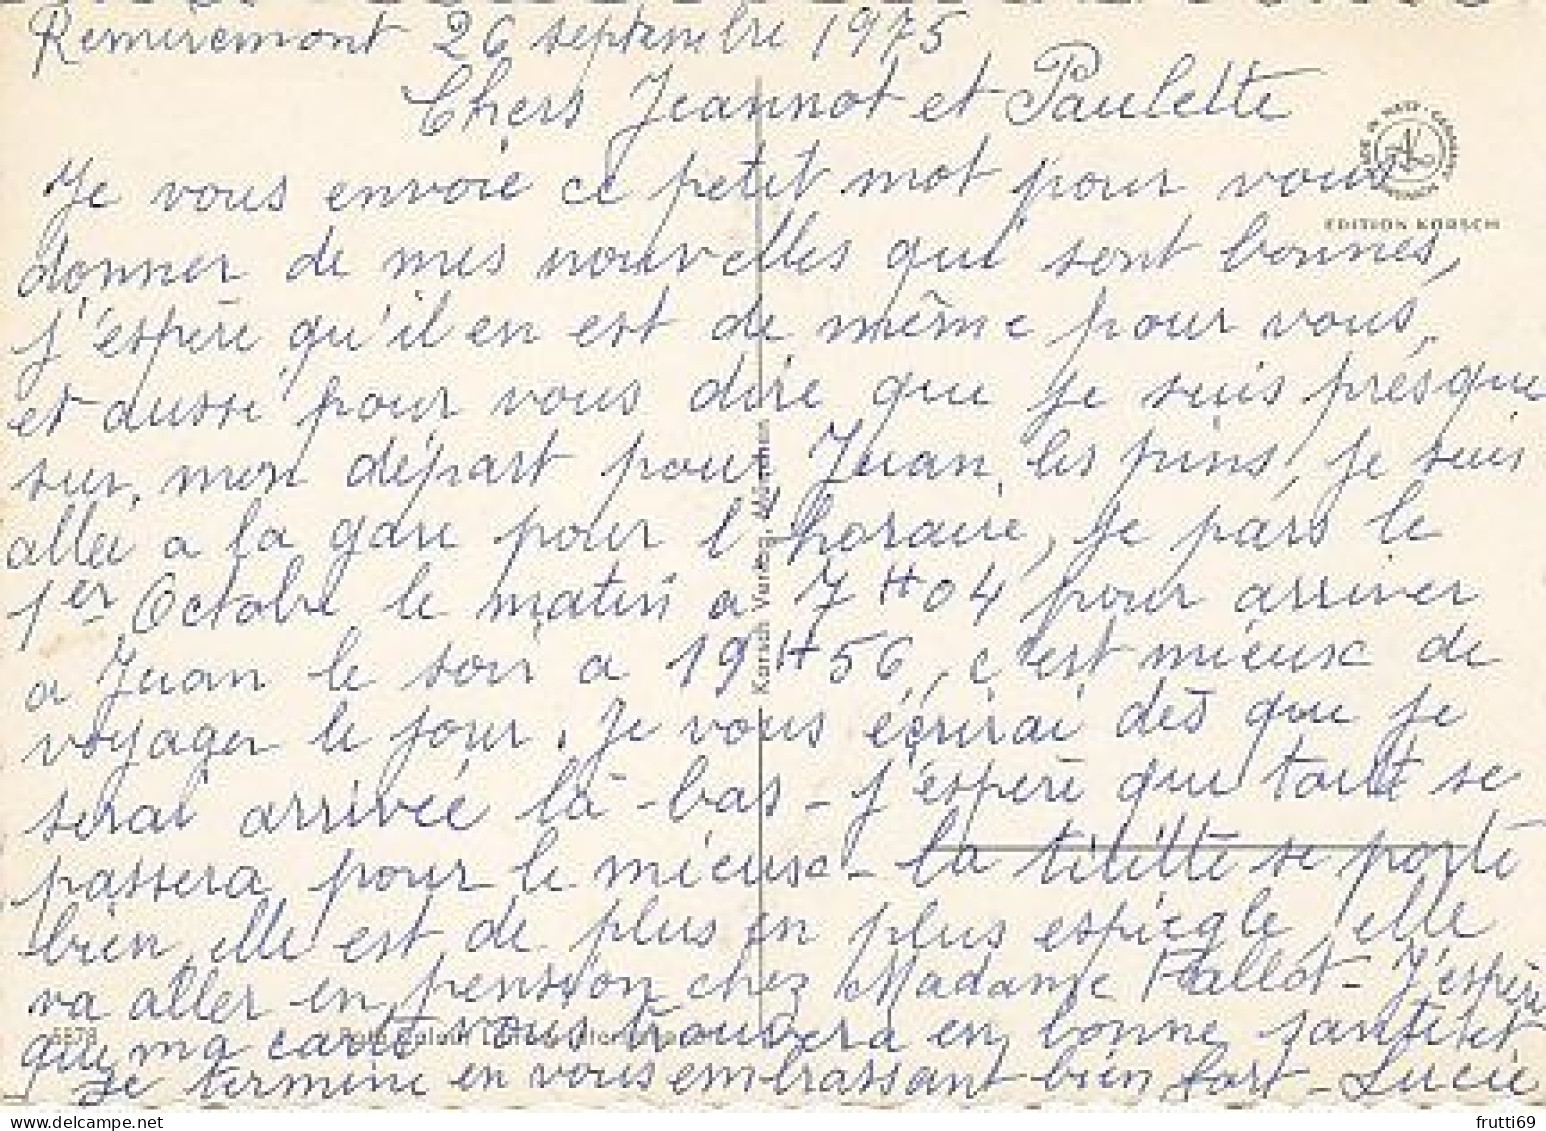 Remiremont 26 septembre 1975
Chers Jeannot et Paulette
Je vous envoie ce petit mot pour vous
EDITION KORSCH
donner de mes nouvelles qui sont bonnes,
j'espère qu'il en est de même pour vous,
et aussi pour vous dire que je suis presque
sur, mon départ pour Juan les pins, je suis
allée a la gare pour l'horaire, je pars le
1er Octobre le matin a 7H04 pour arriver
a Juan le soir a 19H56, c'est mieux de
voyager le jour. Je vous écrirai dès que je
serai arrivée là-bas - j'espère que tout se
passera pour le mieux - la tititte se porte
bien, elle est de plus en plus espiègle, elle
va aller en pension chez Madame Hallot - J'espère
que ma carte vous trouvera en bonne santé et
Je termine en vous embrassant bien fort - Lucie
Korsch Verlag, München
5878
frutti69